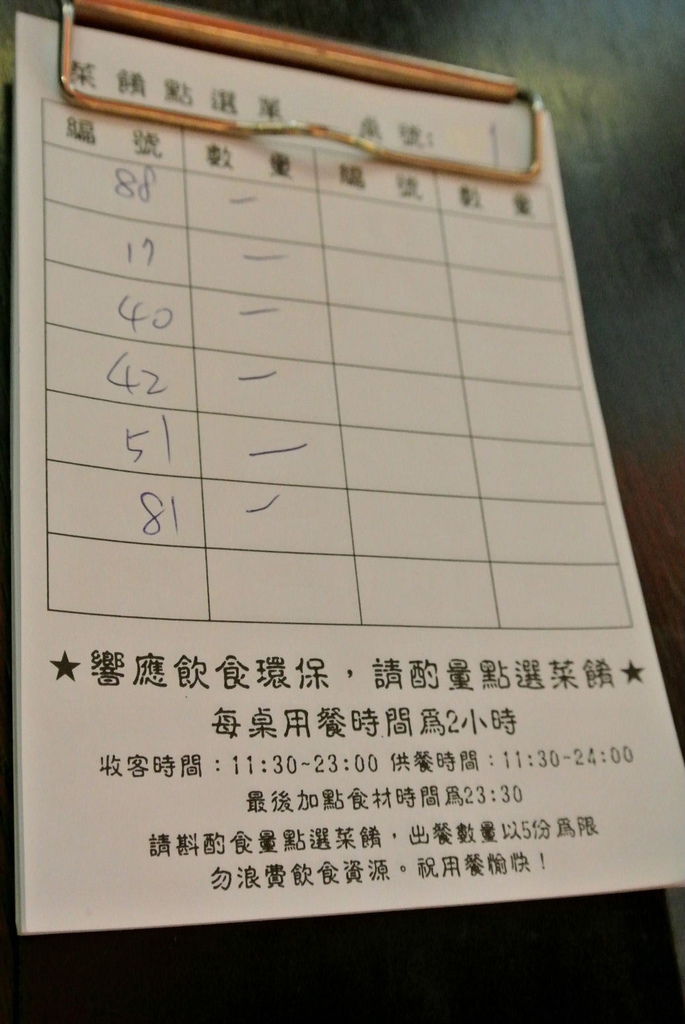 菜餚點選單 桌號: 1
編號 數量 編號 數量
88 一
17 一
40 一
42 一
51 一
81 一
★響應飲食環保，請酌量點選菜餚★
每桌用餐時間為2小時
收客時間：11:30~23:00 供餐時間：11:30-24:00
最後加點食材時間為23:30
請斟酌食量點選菜餚，出餐數量以5份為限
勿浪費飲食資源。祝用餐愉快！